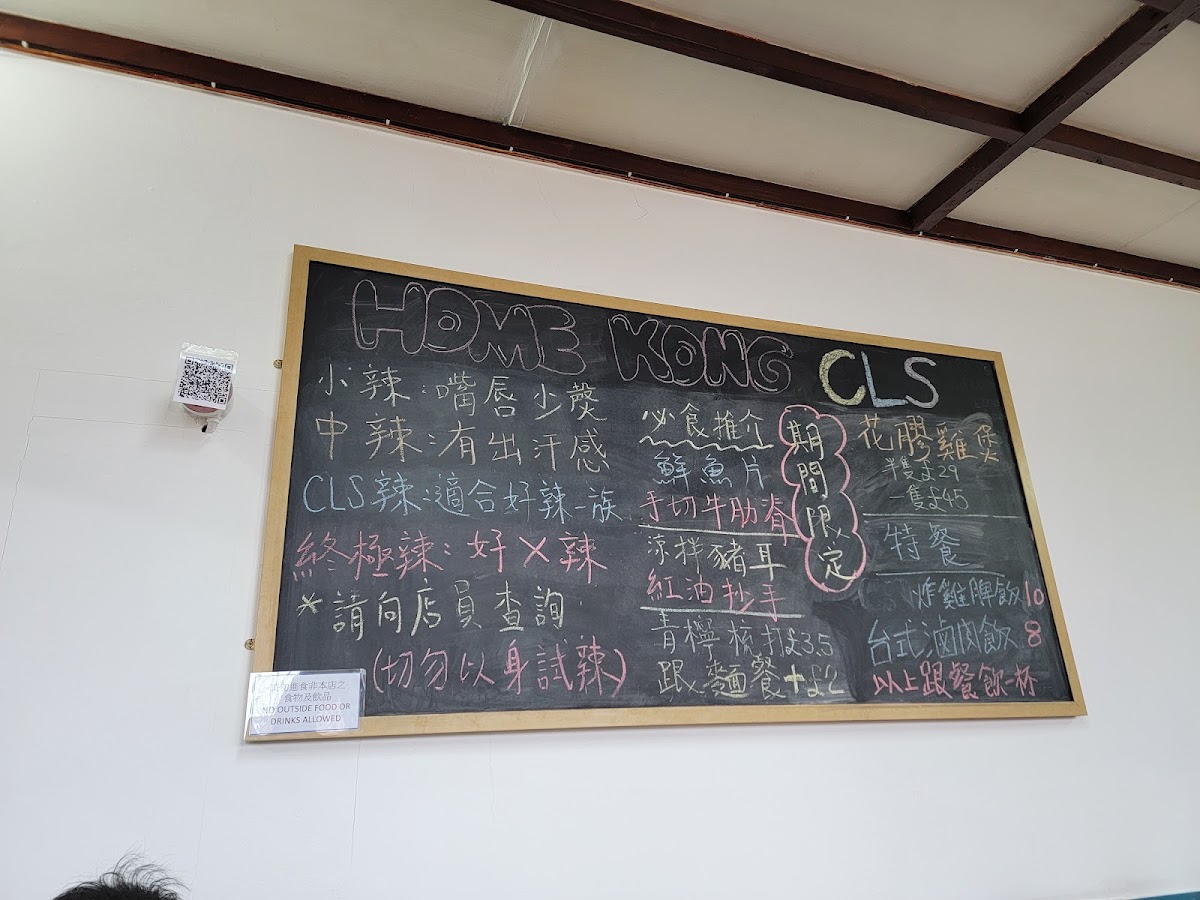 HOME KONG CLS
小辣:嘴唇少𤓓
中辣:有出汗感
CLS辣:適合好辣一族
終極辣:好X辣
*請向店員查詢
(切勿以身試辣)
必食推介
鮮魚片
手切牛肋脊
涼拌豬耳
紅油抄手
青檸梳打£3.5
跟麵餐+£2
期間限定
花膠雞煲
半隻£29
一隻£45
特餐
炸雞脾飯10
台式滷肉飯8
以上跟餐飲一杯
請勿進食非本店之
食物及飲品
NO OUTSIDE FOOD OR
DRINKS ALLOWED